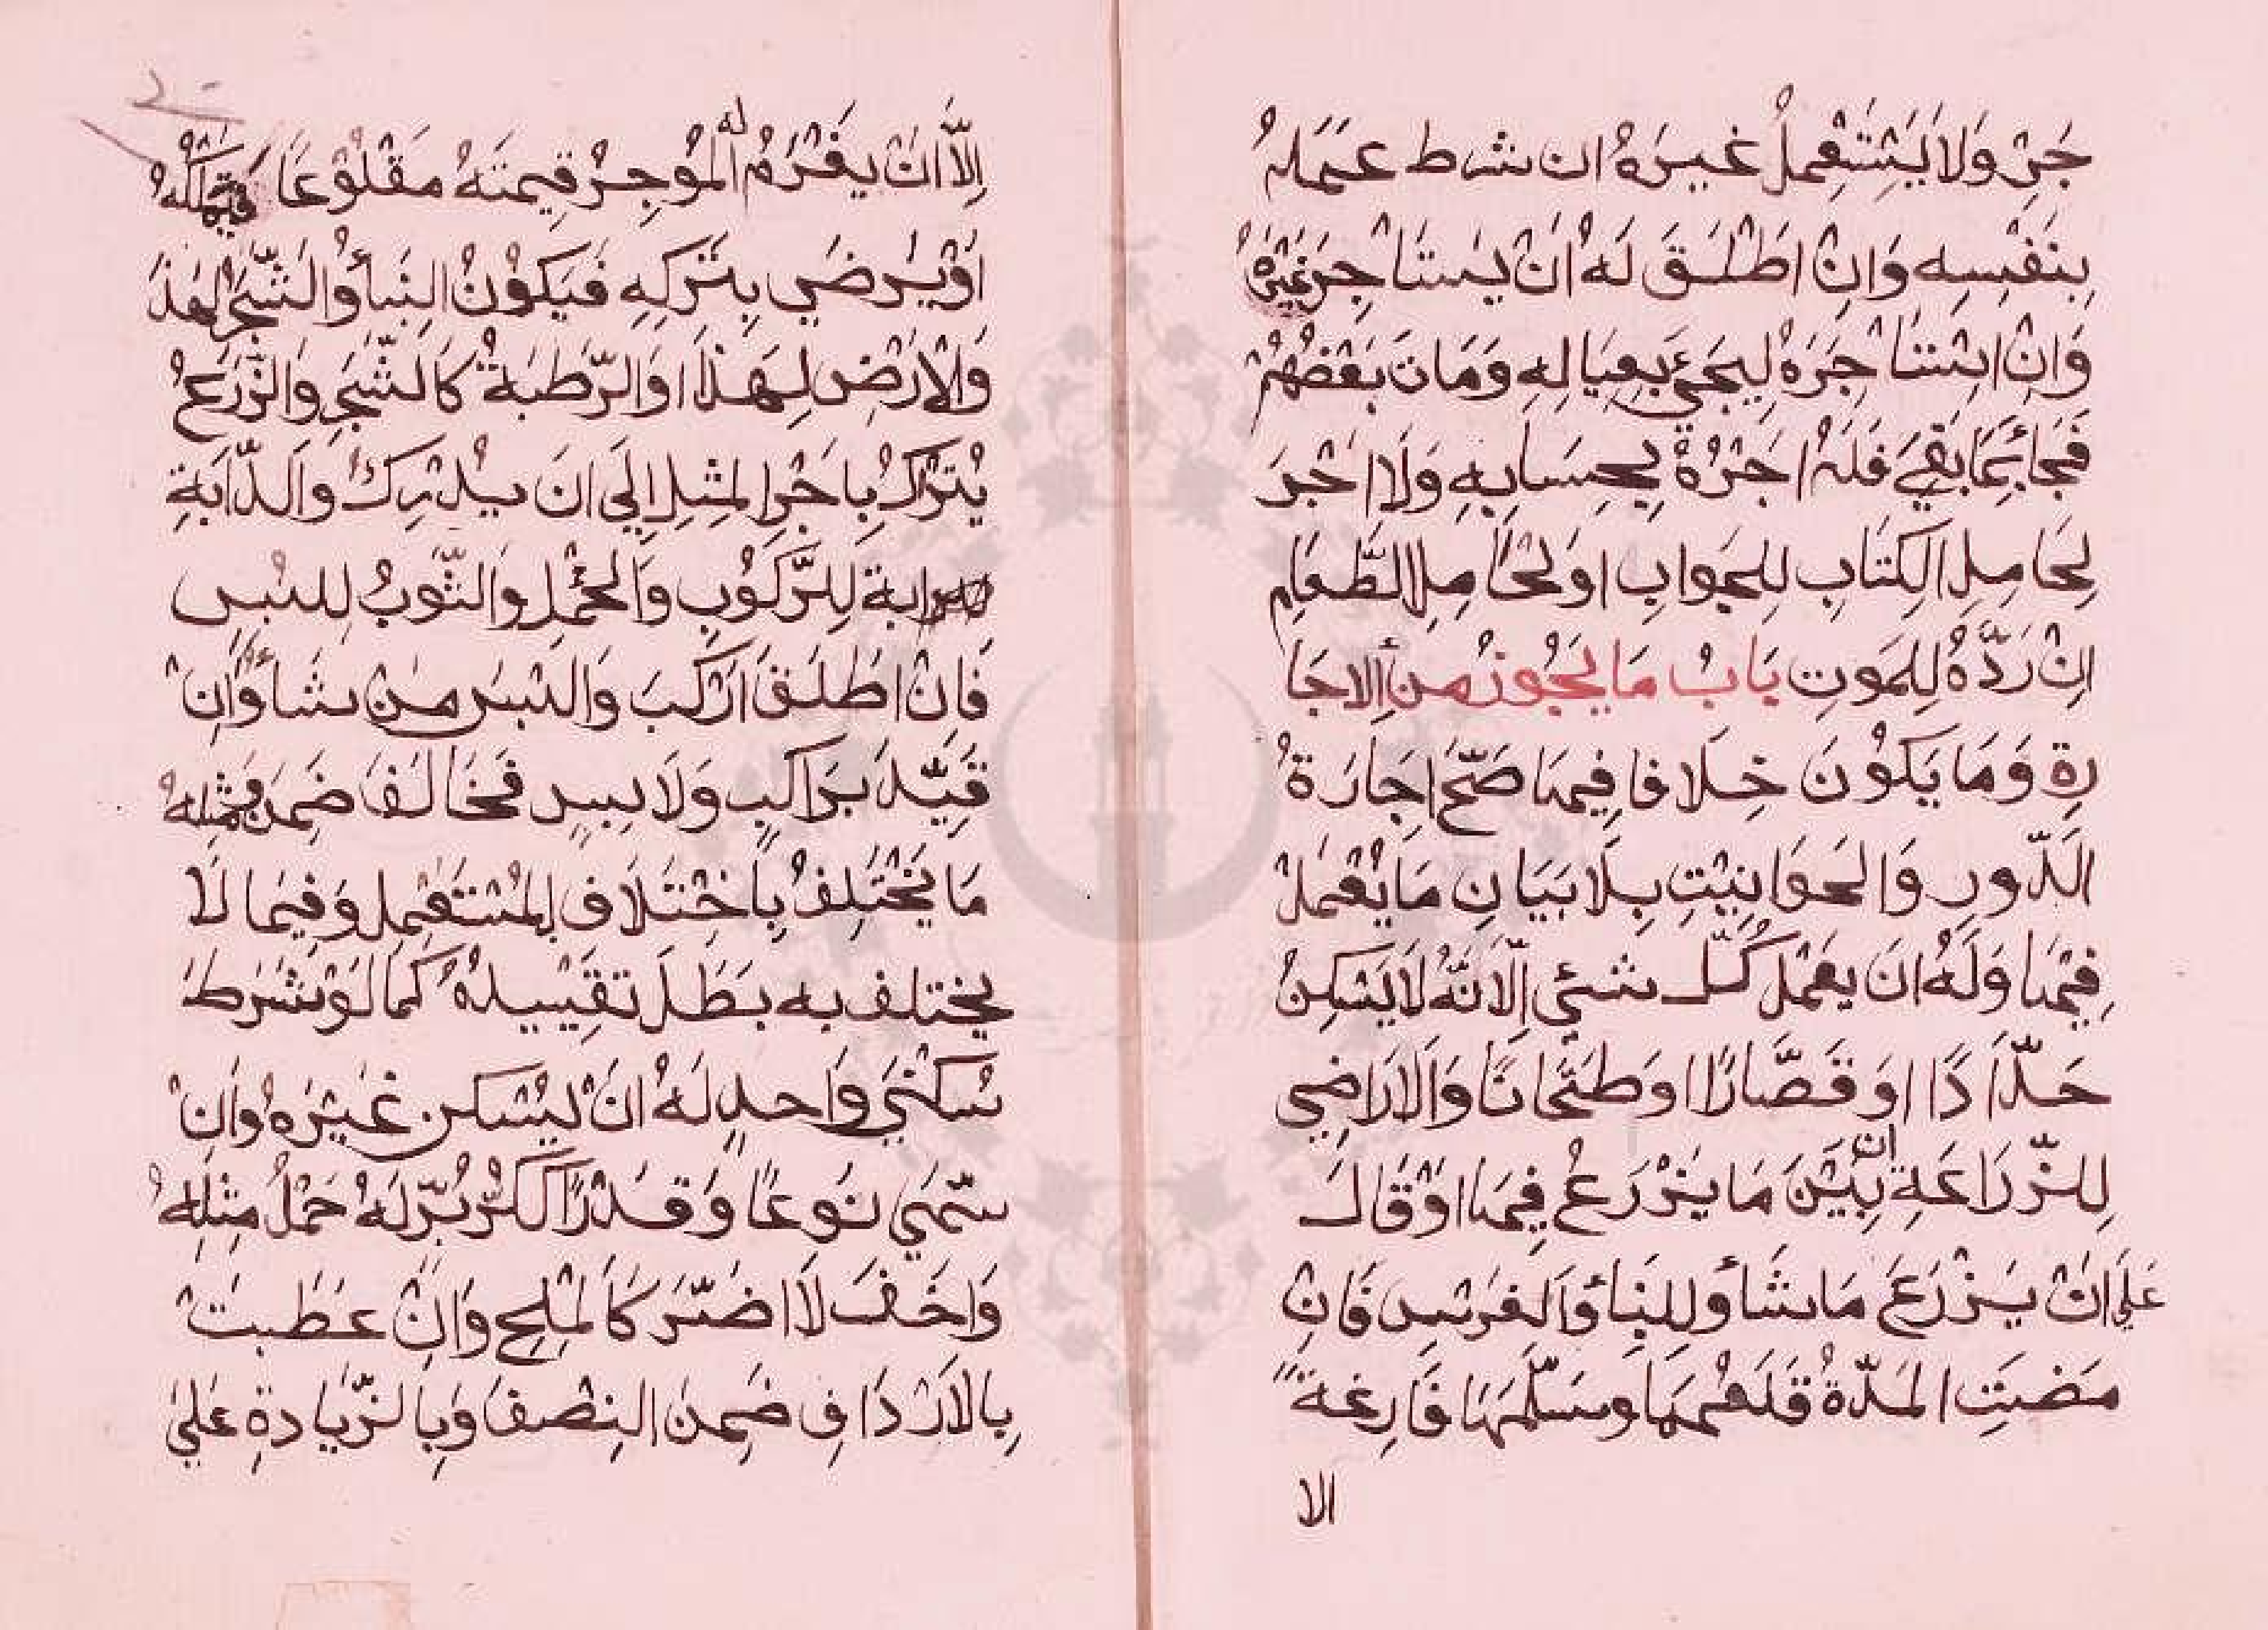 جَرِ وَلَا يَسْتَعْمِلُ غَيْرَهُ ان شرط عَمَلَهُ
بِنَفْسِهِ وَاِنْ اَطْلَقَ لَهُ اَنْ يَسْتَأْجِرَ غَيْرَهُ
وَاِنْ اسْتَأْجَرَهُ لِيَجِئَ بِعِيَالِهِ وَمَاتَ بَعْضُهُمْ
فَجَاءَ بِمَا بَقِيَ فَلَهُ اَجْرُهُ بِحِسَابِهِ وَلَا اَجْرَ
لِحَامِلِ الْكِتَابِ لِلْجَوَابِ اَوْ لِحَامِلِ الطَّعَامِ
اِنْ رَدَّهُ لِلْمَوْتِ بَابُ مَا يَجُوزُ مِنَ الاجَا
رَةِ وَمَا يَكُوْنَ خِلَافا فِيهَا صَحَّ اِجَارَةُ
الدُّورِ وَالْحَوَانِيْتِ بِلَا بَيَانِ مَا يُعْمَلُ
فِيْهَا وَلَهُ اَنَ يَعْمَلَ كُلَّ شَئٍ اِلَّا اَنَّهُ لَا يَسْكِنُ
حَدَّادًا اوَ قَصَّارًا اوَ طَحَّانًا وَالْاَرَاضِي
لِلزِّرَاعَةِ ان بَيَّنَ مَا يَزْرَعُ فِيهَا اَوْ قَالَ
عَلَى اَنْ يَزْرَعَ مَا شَأَ وَلِلْبِنَأِ وَالْغَرْسِ فَاِنْ
مَضَتِ الْمُدَّةُ قَلَعَهُمَا وَسَلَّمَهَا فَارِغَةً
الا
اِلَّا اَنْ يَغْرَمَ له الْمُوجِرُ قِيمَتَهُ مَقْلُوْعًا وَيَتَمَلَّكُهُ
اَوْ يَرْضَي بِتَرْكِهِ فَيَكُوْنُ الْبِنَأُ وَالشَّجَرُ لِهَذَا
وَالْاَرْضُ لِهَذَا وَالرَّطْبَةُ كَالشَّجَرِ وَالزَّرْعُ
يُتْرَكُ بِاَجْرِ الْمِثْلِ اِلَي اَنَ يُدْرِكَ وَالدَّابَةِ
لِلرُّكُوْبِ وَالْحَمْلِ وَالثَّوْبُ لِلُبْسِ
فَاِنْ اَطْلَقَ اَرْكَبَ وَالْبَسَ مَنْ شَأَ وَاِنْ
قَيَّدَ بِرَاكِبٍ وَلَابِسٍ فَخَالَفَ ضَمِنَ وَمِثْلِهُ
مَا يَخْتَلِفُ بِاخْتِلَافِ الْمُسْتَعْمِلِ وَفِيمَا لَا
يختلف به بَطَلَ تَقْيِيدُهُ كَمَا لَوْ شَرَطَ
سُكْنَي وَاحِدٍ لَهُ اَنْ يُسْكِنَ غَيْرَهُ وَاِنْ
سَمَّي نَوْعًا وَقَدْرًا كَكُرِّ بُرٍّ لَهُ حَمْلُ مِثْلِهِ
وَاَخَفَّ لَا اَضَرَّ كَالْمِلْحِ وَاِنْ عَطِبَتْ
بِالْاَرْدَافِ ضَمِنَ النِصْفَ وَبِالزِّيَادةِ عَلَيٰ